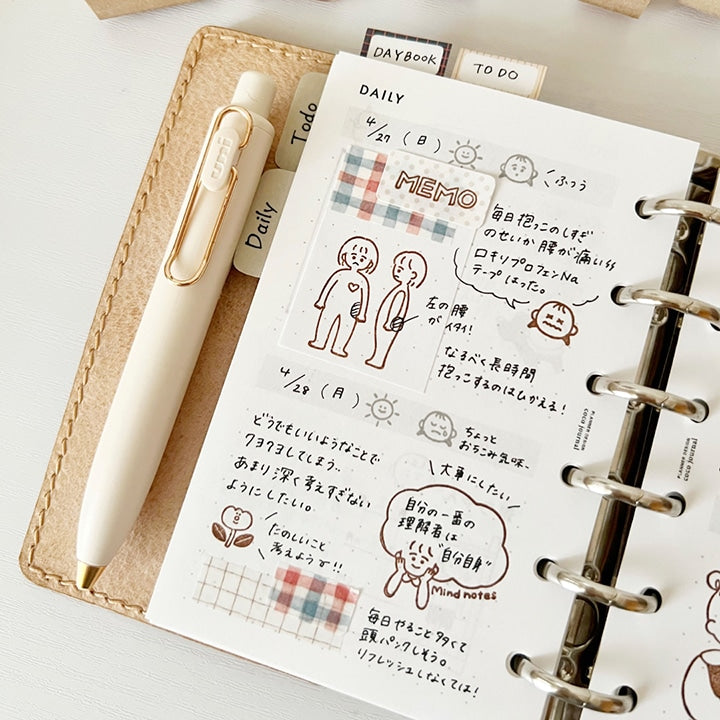 DAYBOOK
TO DO
Todo
Daily
uni
DAILY
4/27 (日)
ふつう
MEMO
毎日抱っこのしすぎ
のせいか 腰が痛い
ロキソプロフェンNa
テープはった。
左の腰
が イタイ!
なるべく長時間
抱っこするのはひかえる!
4/28 (月)
ちょっと
おちこみ気味-
どうでもいいようなことで
クヨクヨしてしまう..
あまり深く考えすぎない
ようにしたい。
たのしいこと
考えよう!!
大事にしたい
自分の一番の
理解者は
"自分自身"
Mind notes
毎日やること多くて
頭パンクしそう。
リフレッシュしなくては!
PLANNER DESIGN
coco journal
PLANNER DESIGN
coco journal